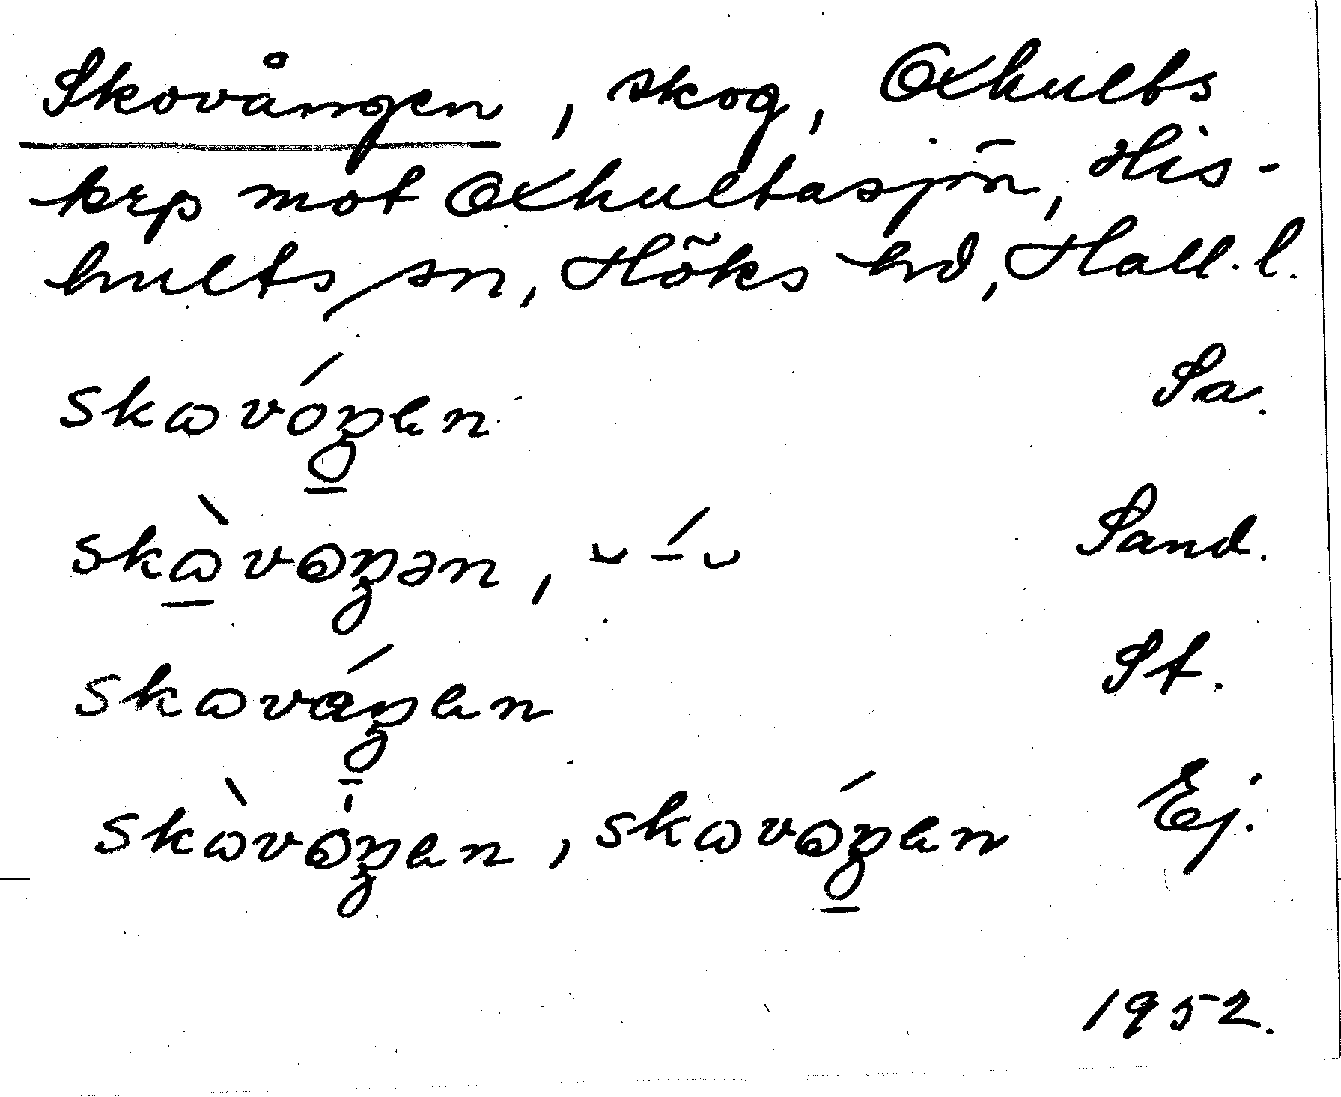 Skovången, skog, Oxhults
krp mot Oxhultasjön, His-
hults sn, Höks hd, Hall. l.
skωvóŋen Sa.
skὼvɷŋən, ⏑ –́ ⏑ Sand.
skωvɑ́ŋen St.
skὼvɷ́ŋen, skωvɷ́ŋen Ej.
1952.